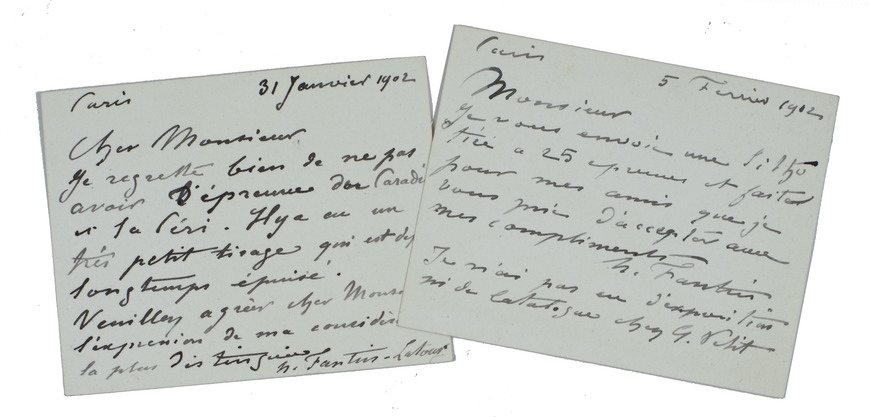 Paris
31 Janvier 1902
Cher Monsieur
Je regrette bien de ne pas
avoir l'épreuve de Paradi
et la Péri. Il y a eu un
très petit tirage qui est dep
longtemps épuisé.
Veuillez agréer cher Mons
l'expression de ma considér
la plus distinguée
h. Fantin-Latour
Paris
5 Fevrier 1902
Monsieur
Je vous envoie une Litho
tirée a 25 epreuves et faites
pour mes amis que je
vous prie d'accepter avec
mes compliments
h. Fantin
Je n'ai pas eu d'exposition
ni de Catalogue chez G. Petit